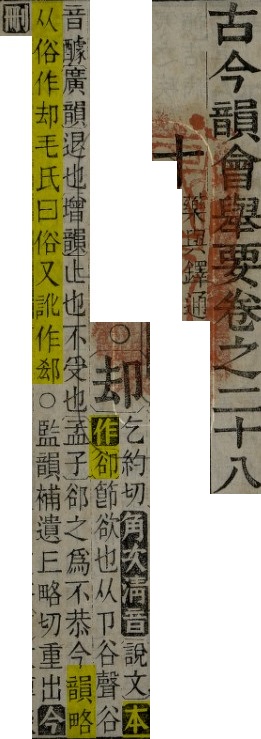 古今韻會舉要卷之二十八
十
藥與鐸通
○却乞約切角次清音說文本
作卻節欲也从卩谷聲谷
音醵廣韻退也增韻止也不受也孟子卻之爲不恭今韻略
从俗作却毛氏曰俗又訛作郄○監韻補遺巨略切重出今
刪